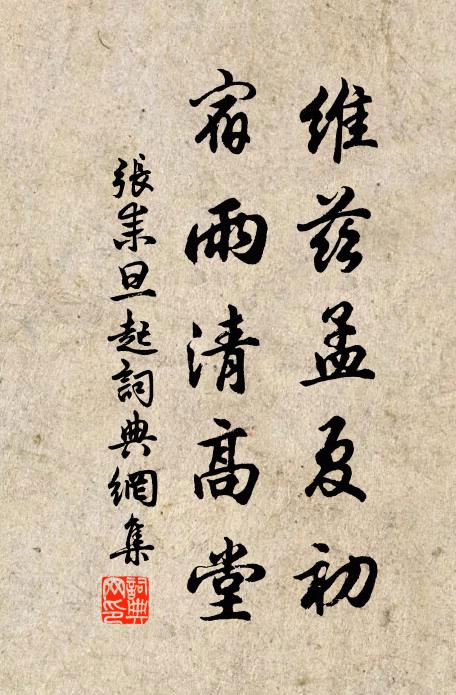 維茲孟夏初
宿雨清高堂
張耒旦起詞典網集
詞典網印